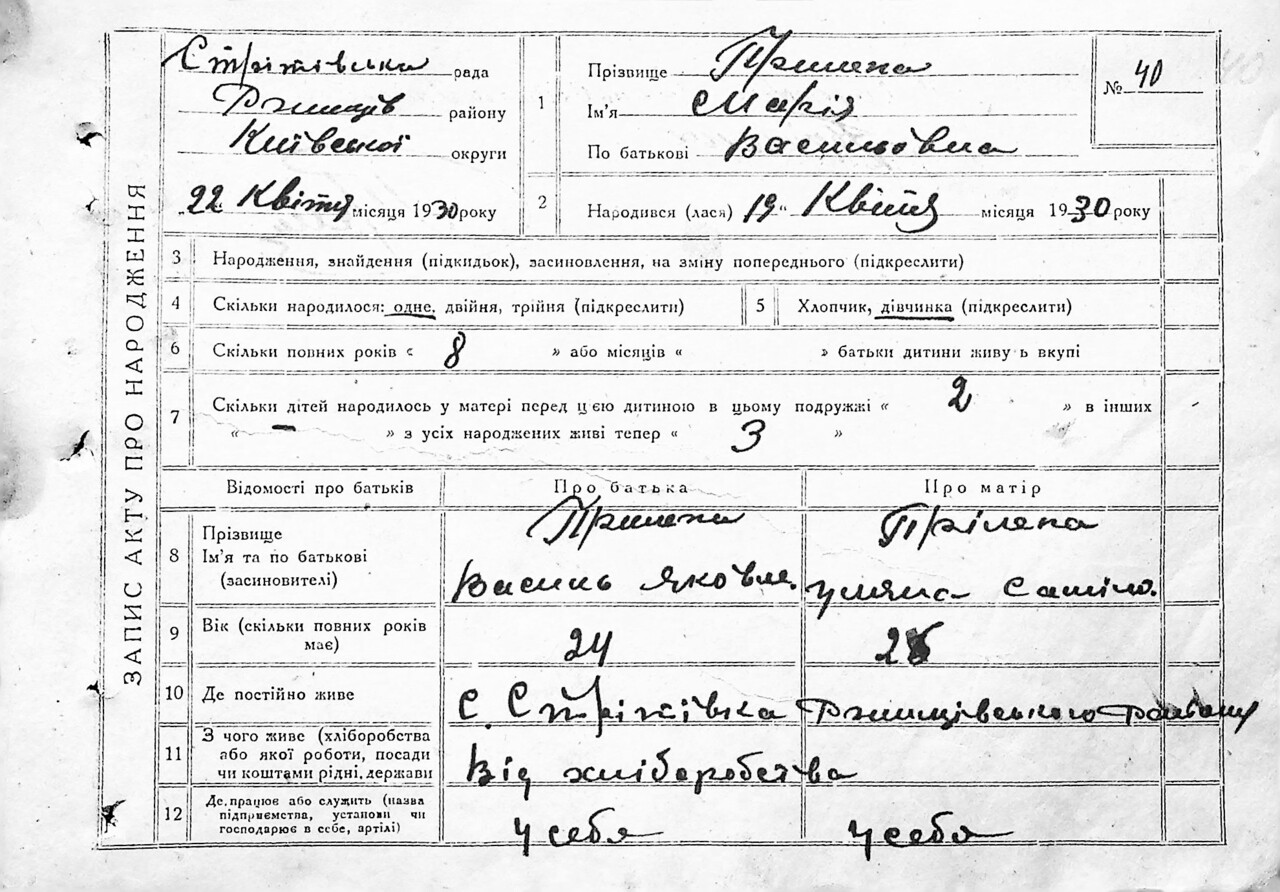 ЗАПИС АКТУ ПРО НАРОДЖЕННЯ
Стрітівська рада
Ржищів району
Київської округи
„22 Квітня місяця 1930 року
1
Прізвище Прилепа
Ім'я Марія
По батькові Васильовна
№ 40
2
Народився (лася) 19 " Квітня місяця 1930 року
3 Народження, знайдення (підкидьок), засиновлення, на зміну попереднього (підкреслити)
4 Скільки народилося: одне, двійня, трійня (підкреслити)
5 Хлопчик, дівчинка (підкреслити)
6 Скільки повних років « 8 » або місяців « » батьки дитини живу ь вкупі
7 Скільки дітей народилось у матері перед цією дитиною в цьому подружжі « 2 » в інших
« — » з усіх народжених живі тепер « 3 »
Відомості про батьків Про батька Про матір
8 Прізвище
Ім'я та по батькові
(засиновителі)
Прилепа
Василь Яковл.
Прілепа
Уляна
9 Вік (скільки повних років
має)
24
10 Де постійно живе
с. Стрітівка Ржищівського Району
11 З чого живе (хліборобства
або якої роботи, посади
чи коштами рідні, держави
Від хліборобства
12 Де працює або служить (назва
підприємства, установи чи
господарює в себе, артілі)
у себя
у себя